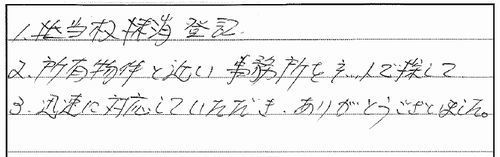 1. 抵当权抹消登記
2. 所有物件と近い事務所をネットで探して
3. 迅速に対応していただき、ありがとうございました。